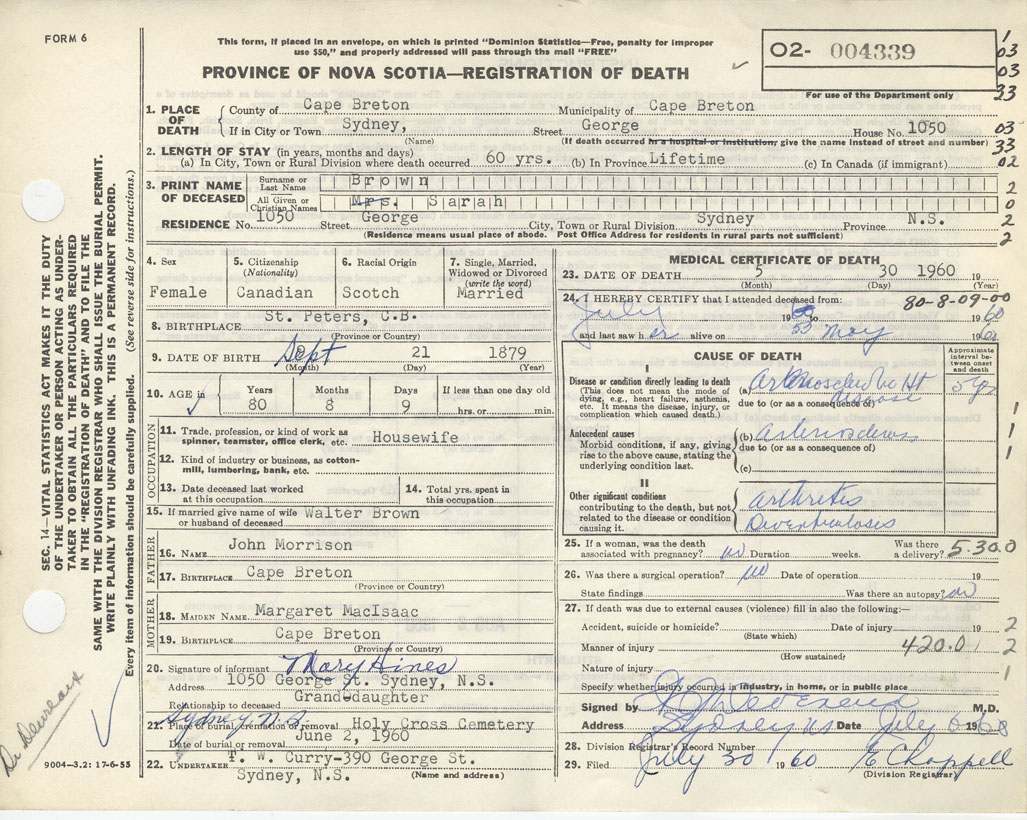 FORM 6
This form, if placed in an envelope, on which is printed "Dominion Statistics—Free, penalty for improper
use $50," and properly addressed will pass through the mail "FREE"
PROVINCE OF NOVA SCOTIA—REGISTRATION OF DEATH
02- 004339
For use of the Department only
1
03
03
33
1. PLACE OF DEATH
County of Cape Breton Municipality of Cape Breton
If in City or Town Sydney, Street George House No. 1050
(Name) (If death occurred in a hospital or institution, give the name instead of street and number)
03
33
2. LENGTH OF STAY (in years, months and days)
(a) In City, Town or Rural Division where death occurred 60 yrs. (b) In Province Lifetime (c) In Canada (if immigrant)
02
3. PRINT NAME OF DECEASED
Surname or Last Name Brown
All Given or Christian Names Mrs. Sarah
2
0
RESIDENCE No. 1050 Street George City, Town or Rural Division Sydney Province N.S.
(Residence means usual place of abode. Post Office Address for residents in rural parts not sufficient)
2
2
4. Sex
Female
5. Citizenship
(Nationality)
Canadian
6. Racial Origin
Scotch
7. Single, Married,
Widowed or Divorced
(write the word)
Married
8. BIRTHPLACE St. Peters, C.B.
(Province or Country)
9. DATE OF BIRTH Sept 21 1879
(Month) (Day) (Year)
10. AGE in
Years 80
Months 8
Days 9
If less than one day old
hrs. or min.
OCCUPATION
11. Trade, profession, or kind of work as
spinner, teamster, office clerk, etc. Housewife
12. Kind of industry or business, as cotton-
mill, lumbering, bank, etc.
13. Date deceased last worked
at this occupation.
14. Total yrs. spent in
this occupation.
15. If married give name of wife
or husband of deceased Walter Brown
FATHER
16. NAME John Morrison
17. BIRTHPLACE Cape Breton
(Province or Country)
MOTHER
18. MAIDEN NAME Margaret MacIsaac
19. BIRTHPLACE Cape Breton
(Province or Country)
20. Signature of informant Mary Hines
Address 1050 George St. Sydney, N.S.
Relationship to deceased Grand-daughter
Sydney N.S.
21. Place of burial, cremation or removal Holy Cross Cemetery
Date of burial or removal June 2, 1960
22. UNDERTAKER T. W. Curry-390 George St.
Sydney, N.S. (Name and address)
MEDICAL CERTIFICATE OF DEATH
23. DATE OF DEATH 5 30 1960 19
(Month) (Day) (Year)
24. I HEREBY CERTIFY that I attended deceased from: 80-8-09-00
July 19 53 60
and last saw her alive on May 19 60
CAUSE OF DEATH
Approximate interval between onset and death
I
Disease or condition directly leading to death
(This does not mean the mode of
dying, e.g., heart failure, asthenia,
etc. It means the disease, injury, or
complication which caused death.)
(a) Ht disease
due to (or as a consequence of)
5 yrs
Antecedent causes
Morbid conditions, if any, giving
rise to the above cause, stating the
underlying condition last.
(b)
due to (or as a consequence of)
(c)
1
1
1
II
Other significant conditions
contributing to the death, but not
related to the disease or condition
causing it.
arthritis
25. If a woman, was the death
associated with pregnancy? no Duration weeks. Was there
a delivery? 5.30.0
26. Was there a surgical operation? no Date of operation 19
State findings Was there an autopsy? no
27. If death was due to external causes (violence) fill in also the following:—
Accident, suicide or homicide? Date of injury 19
(State which)
2
Manner of injury 420.0 1 2
(How sustained)
Nature of injury 1
Specify whether injury occurred in industry, in home, or in public place
Signed by M.D.
Address Sydney NS Date July 1960
28. Division Registrar's Record Number
29. Filed July 30 1960 E Chappell
(Division Registrar)
SEC. 14—VITAL STATISTICS ACT MAKES IT THE DUTY
OF THE UNDERTAKER OR PERSON ACTING AS UNDER-
TAKER TO OBTAIN ALL THE PARTICULARS REQUIRED
IN THE "REGISTRATION OF DEATH" AND TO FILE THE
SAME WITH THE DIVISION REGISTRAR WHO SHALL ISSUE THE BURIAL PERMIT.
WRITE PLAINLY WITH UNFADING INK. THIS IS A PERMANENT RECORD.
Every item of information should be carefully supplied. (See reverse side for instructions.)
9004—3.2: 17-6-55